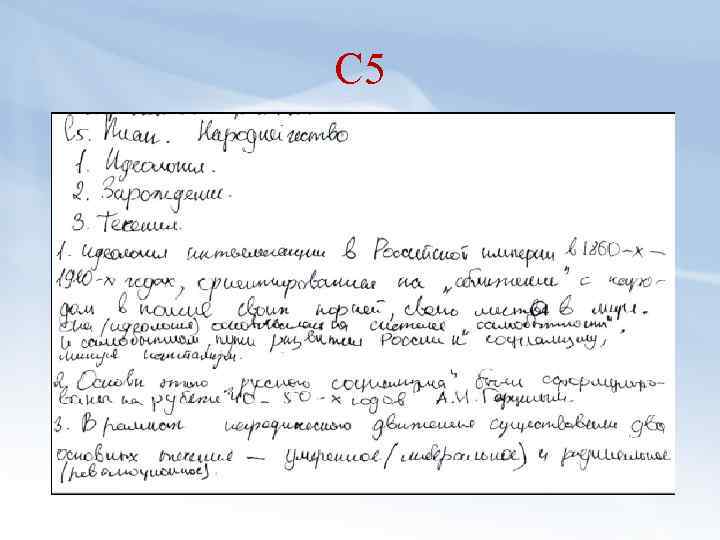 С5
С5. План. Народничество
1. Идеология.
2. Зарождение.
3. Течения.
1. Идеология интеллигенции в Российской империи в 1860-х –
1910-х годах, ориентированная на „сближение" с наро-
дом в поиске своих корней, своего места в мире.
Она /идеология/ основывалась на системе „самобытности"
и самобытном пути развития России к социализму,
минуя капитализм.
2. Основы этого „русского социализма" были сформулиро-
ваны на рубеже 40-50-х годов А.И. Герценым.
3. В рамках народнического движения существовали два
основных течения – умеренное /либеральное/ и радикальное
/революционное/.